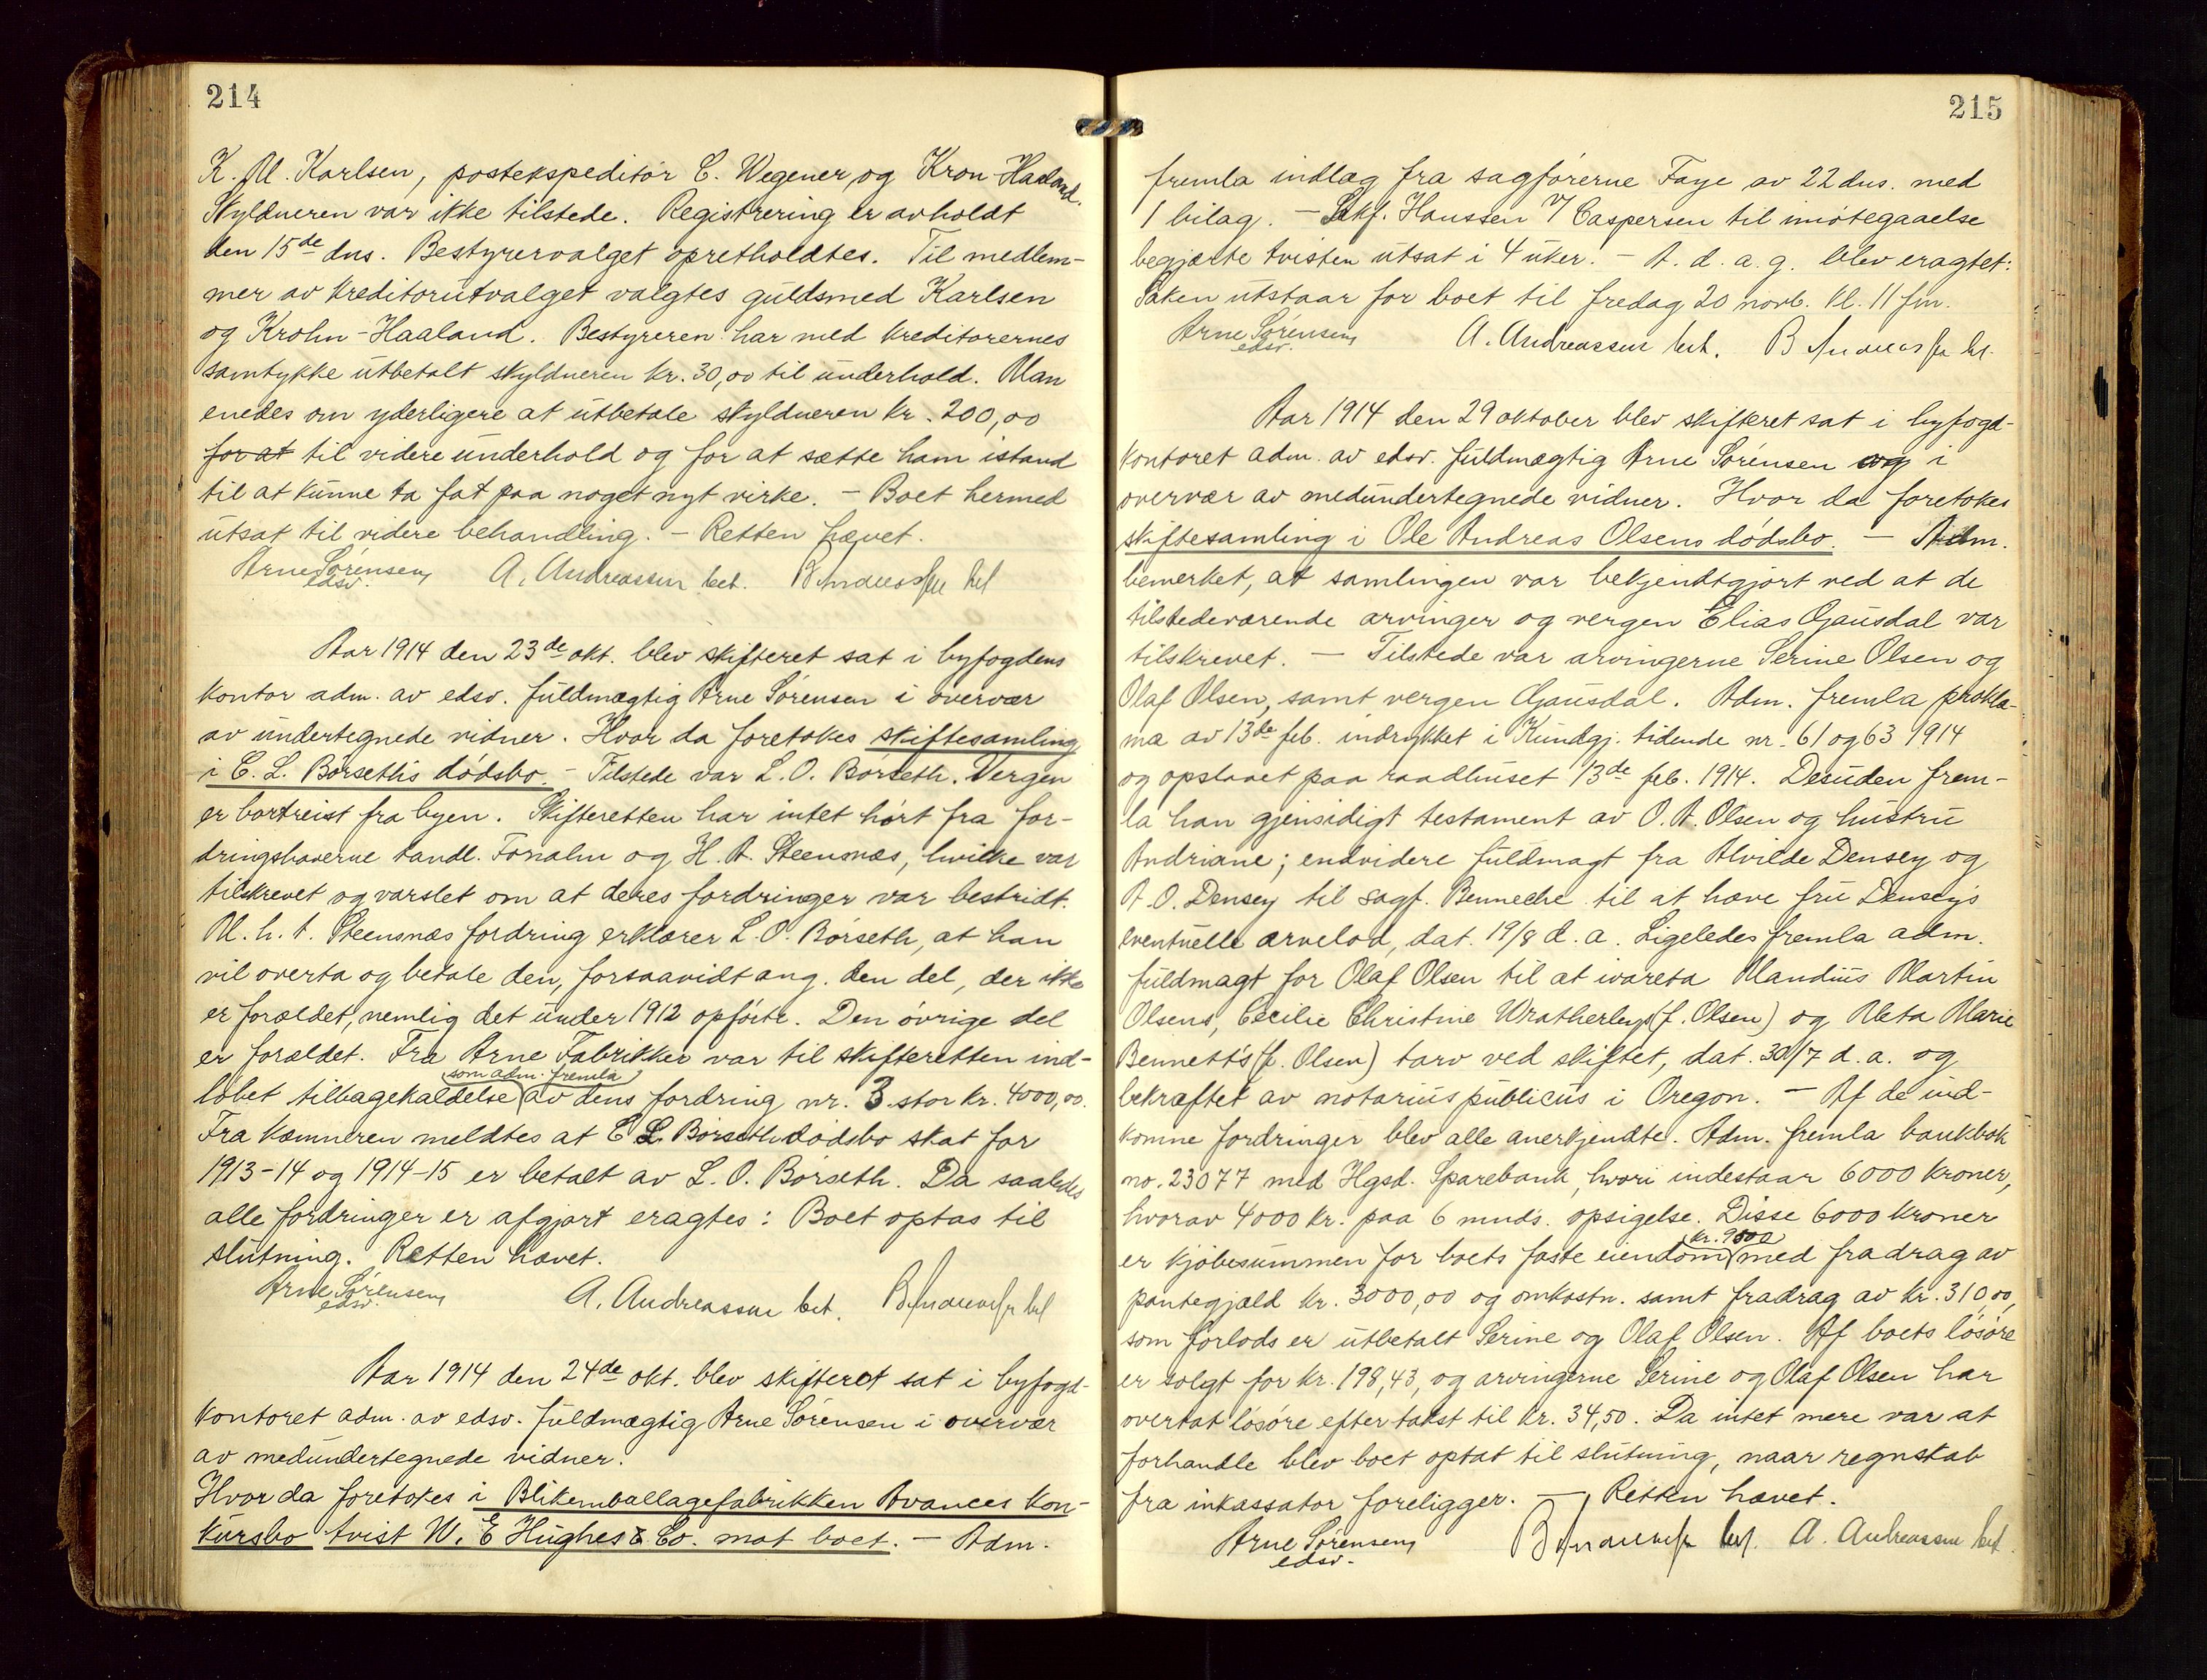 214
K. M. Karlsen, postekspeditör C. Wegener og Kron-Haaland.
Skyldneren var ikke tilstede. Registrering er avholdt
den 15de dns. Bestyrervalget opretholdtes. Til medlem-
mer av kreditorutvalget valgtes guldsmed Karlsen
og Krohn-Haaland. Bestyreren har med kreditorernes
samtykke utbetalt skyldneren kr. 30,00 til underhold. Man
enedes om yderligere at utbetale skyldneren kr. 200,00
for at til videre underhold og for at sætte ham istand
til at kunne ta fat paa noget nyt virke. - Boet hermed
utsat til videre behandling. - Retten hævet.
Arne Sörensen A. Andreassen bet.
edsv.
Aar 1914 den 23de okt. blev skifteret sat i byfogdens
kontor adm. av edsv. fuldmægtig Arne Sörensen i overvær
av undertegnede vidner. Hvor da foretokes skiftesamling
i C. L. Börseths dödsbo. - Tilstede var L. O. Börseth. Vergen
er bortreist fra byen. Skifteretten har intet hört fra for-
dringshaverne tandl. Fonahn og H. A. Steensnæs, hvilke var
tilskrevet og varslet om at deres fordringer var bestridt.
M. h. t. Steensnæs fordring erklærer L. O. Börseth, at han
vil overta og betale den, forsaavidt ang. den del, der ikke
er forældet, nemlig det under 1912 opförte. Den övrige del
er forældet. Fra Arne Fabrikker var til skifteretten ind-
som adm. fremla
löbet tilbagekaldelse av dens fordring nr. 3 stor kr. 4000,00.
Fra kæmneren meldtes at C L. Börseths dödsbo skat for
1913-14 og 1914-15 er betalt av L. O. Börseth. Da saaledes
alle fordringer er afgjort eragtes: Boet optas til
slutning. Retten hævet.
Arne Sörensen A. Andreassen bet.
edsv.
Aar 1914 den 24de okt. blev skifteret sat i byfogd-
kontoret adm. av edsv. fuldmægtig Arne Sörensen i overvær
av medundertegnede vidner.
Hvor da foretokes i Blikemballagefabrikken Avances kon-
kursbo tvist W. E Hughes & Co. mot boet. - Adm.
215
fremla indlæg fra sagförerne Faye av 22 dns. med
1 bilag. - Sakf. Hanssen v/ Caspersen til imötegaaelse
begjærte tvisten utsat i 4 uker. - A. d. a. g. blev eragtet:
Saken utstaar for boet til fredag 20 novb. kl. 11 fm.
Arne Sörensen A. Andreassen bet.
edsv.
Aar 1914 den 29 oktober blev skifteret sat i byfogd-
kontoret adm. av edsv. fuldmægtig Arne Sörensen og i
overvær av medundertegnede vidner. Hvor da foretokes
skiftesamling i Ole Andreas Olsens dödsbo. - Adm.
bemerket, at samlingen var bekjendtgjort ved at de
tilstedeværende arvinger og vergen Elias Gausdal var
tilskrevet. - Tilstede var arvingerne Serine Olsen og
Olaf Olsen, samt vergen Gausdal. Adm. fremla prokla-
ma av 13de feb. indrykket i Kundgj. tidende nr. 61 og 63 1914
og opslaaet paa raadhuset 13de feb. 1914. Desuden frem-
la han gjensidigt testament av O. A. Olsen og hustru
Andriane; endvidere fuldmagt fra Alvilde Densey og
A. O. Densey til sagf. Benneche til at hæve fru Densey's
eventuelle arvelod, dat. 19/8 d. a. Ligeledes fremla adm.
fuldmagt for Olaf Olsen til at ivareta Mandius Martin
Olsens, Cecilie Christine Wratherleys (f. Olsen) og Meta Marie
Bennett's (f. Olsen) tarv ved skiftet, dat. 30/7 d. a. og
bekræftet av notarius publicus i Oregon. - Af de ind-
komne fordringer blev alle anerkjendte. Adm. fremla bankbok
no. 23077 med Hgsd. Sparebank, hvori indestaar 6000 kroner,
hvorav 4000 kr. paa 6 mnds. opsigelse. Disse 6000 kroner
kr. 9500
er kjöbesummen for boets faste eiendom med fradrag av
pantegjæld kr. 3000,00 og omkostn. samt fradrag av kr. 310,00,
som forlods er utbetalt Serine og Olaf Olsen. Af boets lösöre
er solgt for kr. 198,43, og arvingerne Serine og Olaf Olsen har
overtat lösöre efter takst til kr. 34,50. Da intet mere var at
forhandle blev boet optat til slutning, naar regnskab
fra inkassator foreligger. - Retten hævet.
Arne Sörensen A. Andreassen bet.
edsv.